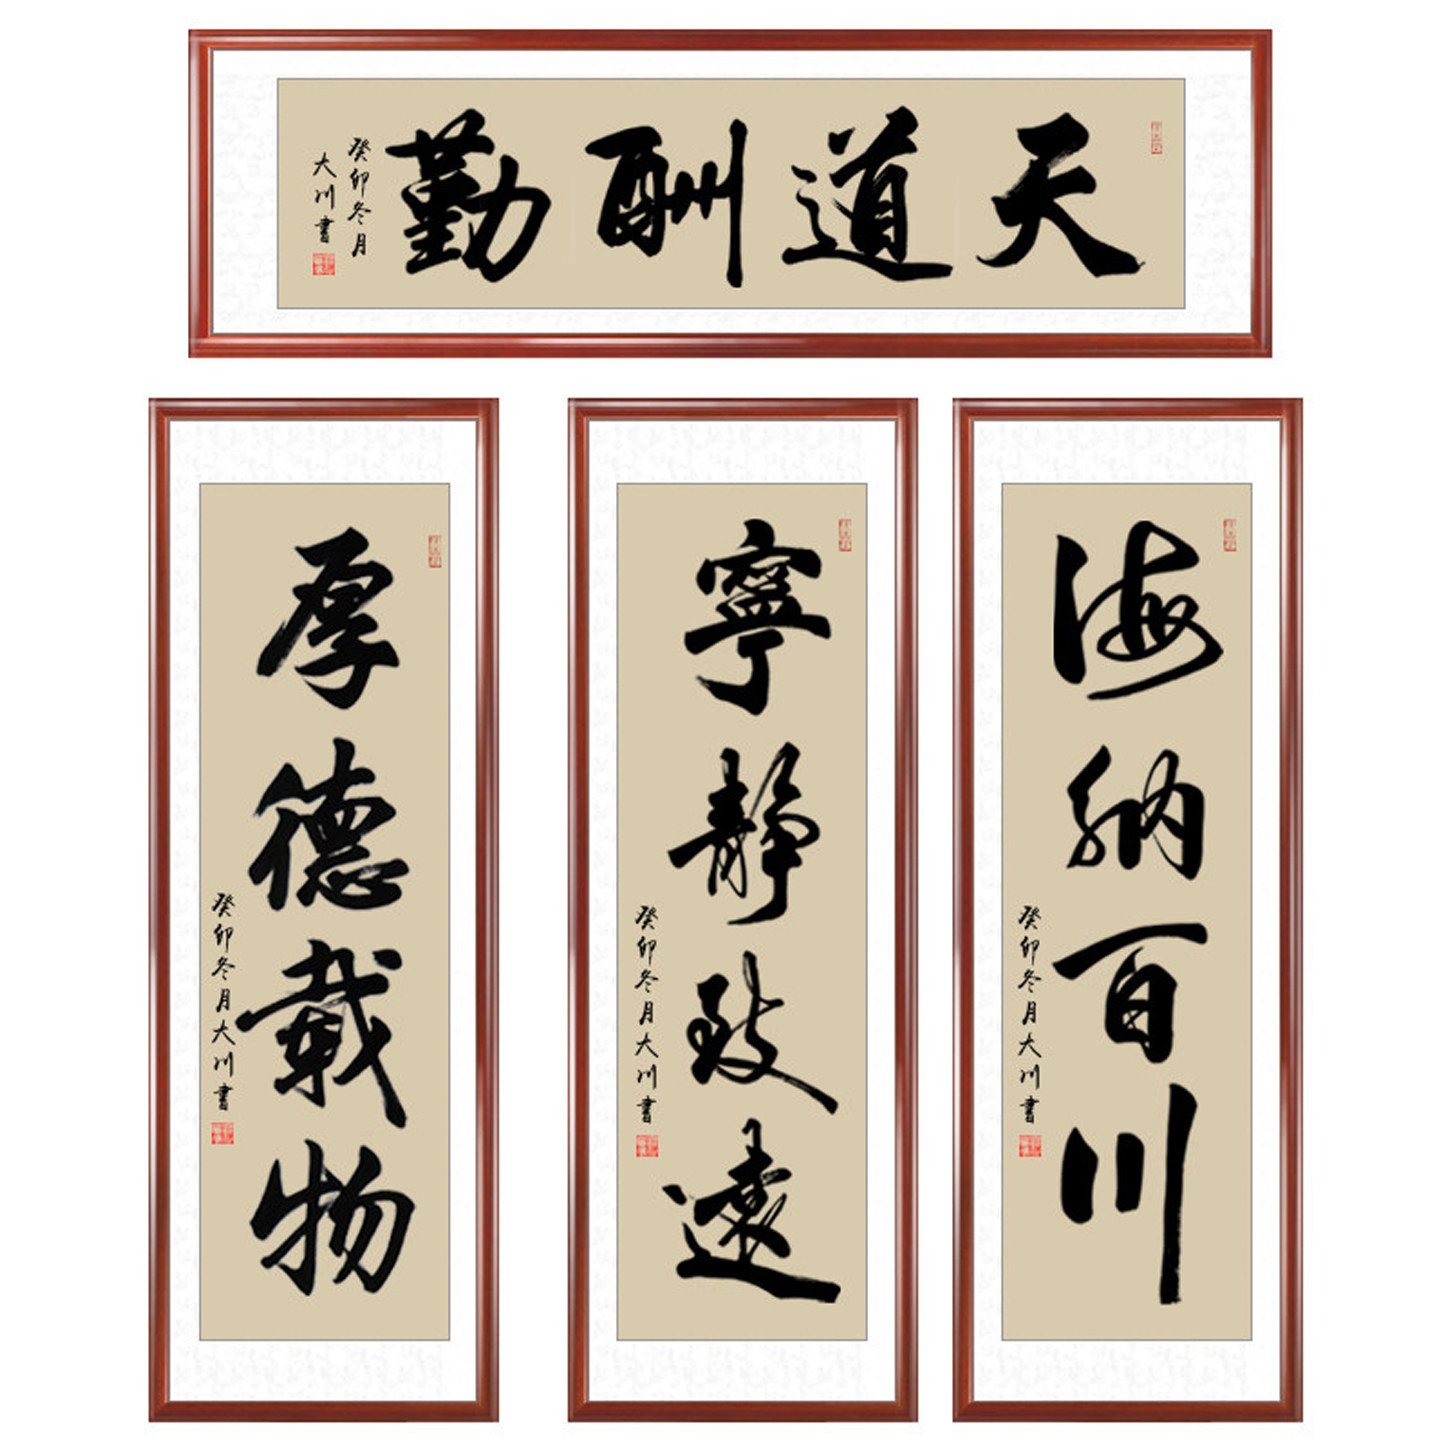 天道酬勤
癸卯冬月
大川書
海納百川
癸卯冬月大川書
寧靜致遠
癸卯冬月大川書
厚德載物
癸卯冬月大川書